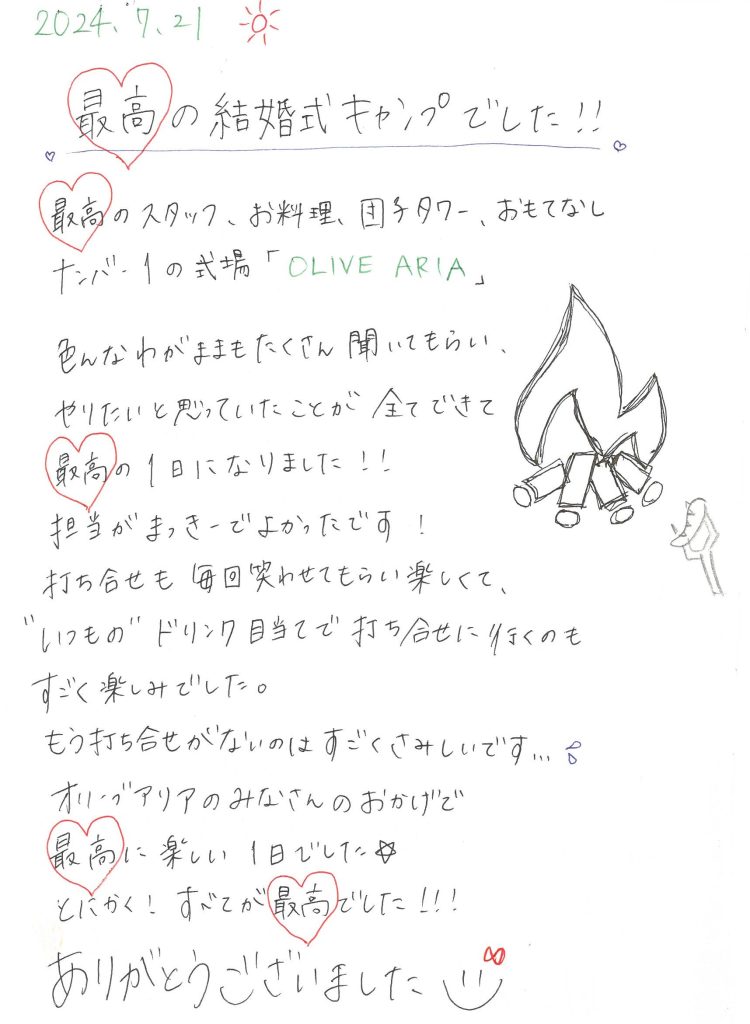 2024.7.21
最高の結婚式キャンプでした!!
最高のスタッフ、お料理、団子タワー、おもてなし
ナンバー1の式場「OLIVE ARIA」
色んなわがままもたくさん聞いてもらい、
やりたいと思っていたことが全てできて
最高の1日になりました!!
担当がまっきーでよかったです!
打ち合せも毎回笑わせてもらい楽しくて、
"いつもの"ドリンク目当てで打ち合せに行くのも
すごく楽しみでした。
もう打ち合せがないのはすごくさみしいです...
オリーブアリアのみなさんのおかげで
最高に楽しい1日でした☆
とにかく!すべてが最高でした!!!
ありがとうございました